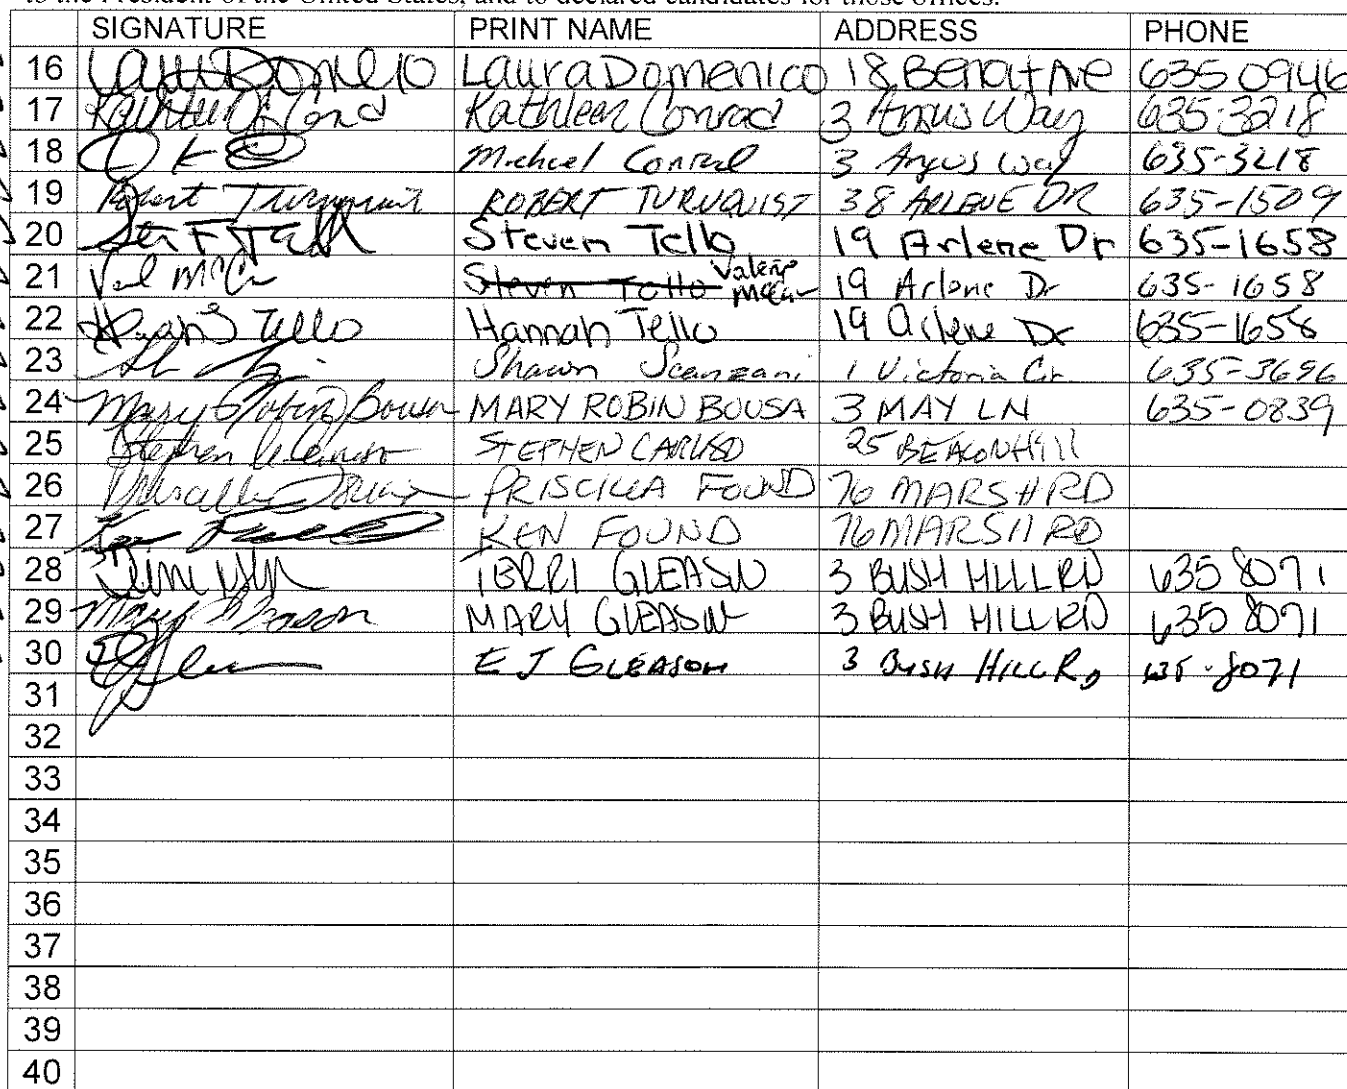 to the President of the United States, and to declared candidates for those offices.
SIGNATURE PRINT NAME ADDRESS PHONE
16 Laura Domenico 18 Benat Ave 635 0946
17 Kathleen Conrad 3 Angus Way 635-3218
18 Michael Conrad 3 Angus Way 635-3218
19 Robert Turnquist ROBERT TURNQUIST 38 ARLENE DR 635-1509
20 Steven Tello 19 Arlene Dr 635-1658
21 Val McCa Steven Tello Valerie 19 Arlene Dr 635-1658
22 Hannah Tello Hannah Tello 19 Arlene Dr 635-1658
23 Shawn Scanzani 1 Victoria Cir 635-3696
24 Mary Robin Bousa MARY ROBIN BOUSA 3 MAY LN 635-0839
25 Stephen Caruso STEPHEN CARUSO 25 BEACON Hill
26 Priscilla Found PRISCILLA FOUND 76 MARSH RD
27 Ken Found KEN FOUND 76 MARSH RD
28 TERRI GLEASON 3 BUSH HILL RD 635 8071
29 Mary Gleason MARY GLEASON 3 BUSH HILL RD 635 8071
30 EJ GLEASON 3 BUSH HILL RD 635-8071
31
32
33
34
35
36
37
38
39
40